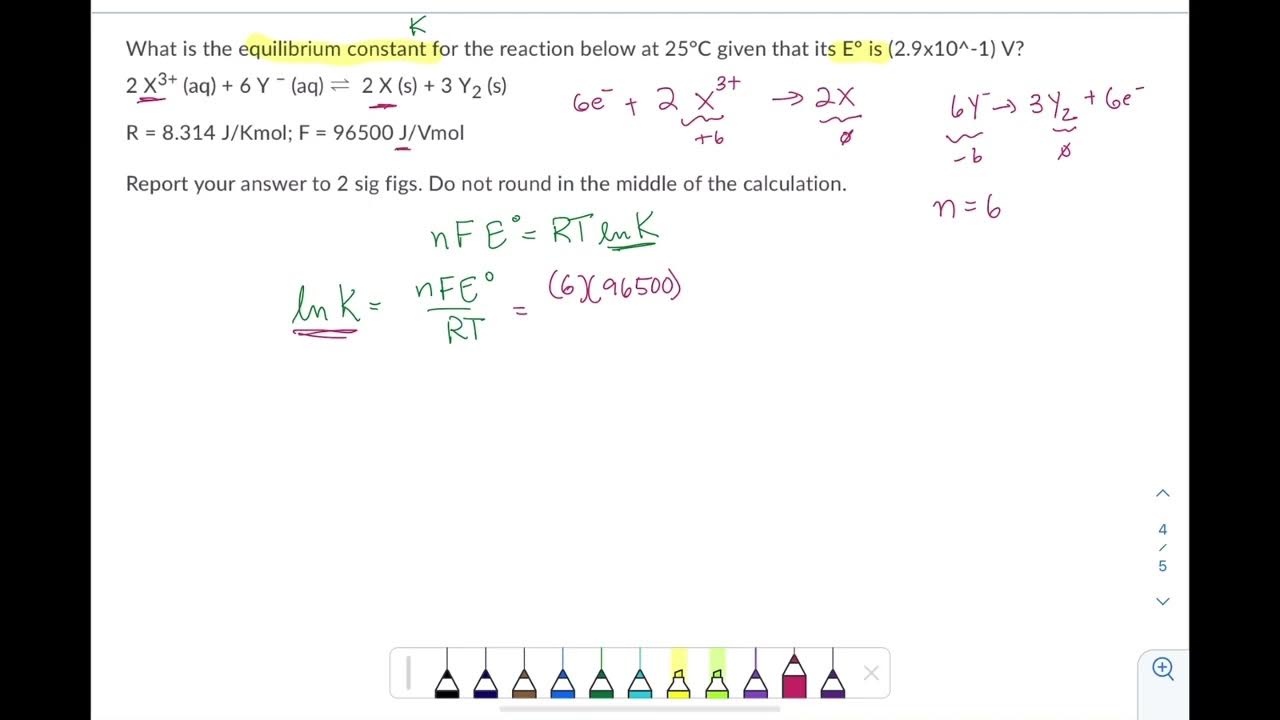 K
What is the equilibrium constant for the reaction below at 25°C given that its E° is (2.9x10^-1) V?
2 X³⁺ (aq) + 6 Y ⁻ (aq) ⇌ 2 X (s) + 3 Y₂ (s)
6e⁻ + 2 X³⁺ → 2X
+6 ∅
6Y⁻ → 3Y₂ + 6e⁻
-6 ∅
R = 8.314 J/Kmol; F = 96500 J/Vmol
Report your answer to 2 sig figs. Do not round in the middle of the calculation.
n = 6
nFE° = RT lnK
ln K = nFE° / RT = (6)(96500)
4
/
5